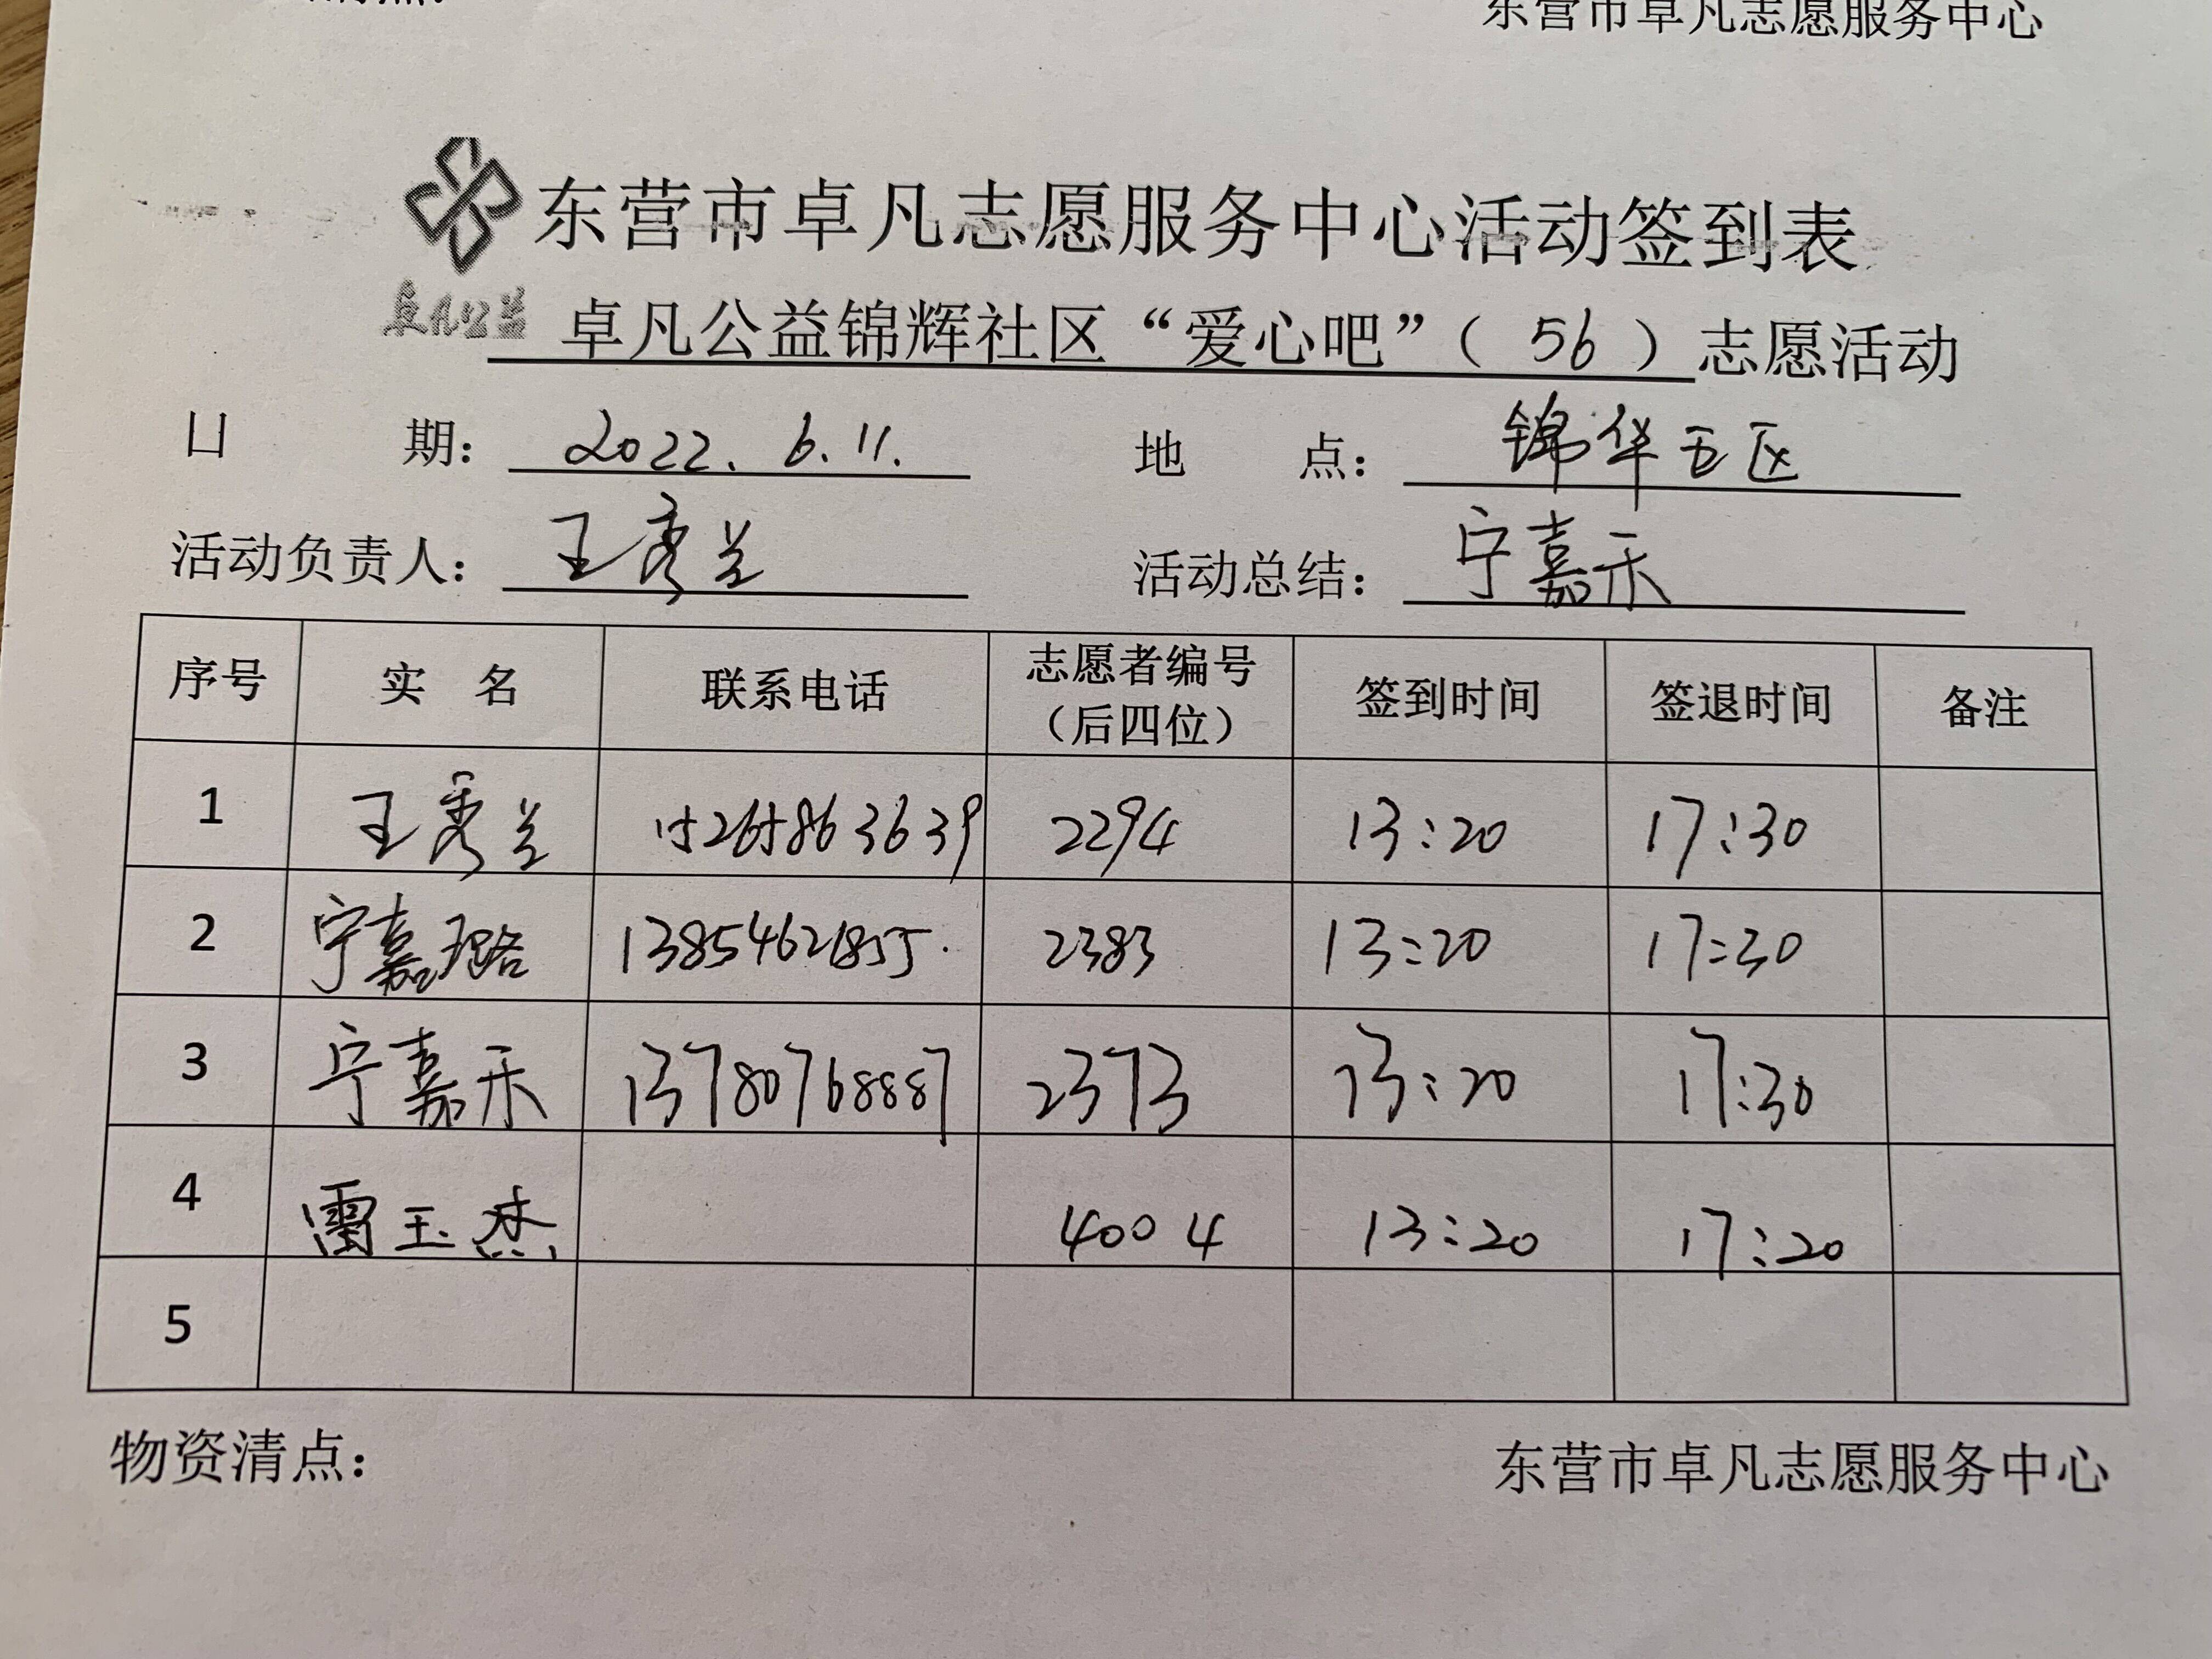 东营市卓凡志愿服务中心
东营市卓凡志愿服务中心活动签到表
卓凡公益
卓凡公益锦辉社区“爱心吧”（ 56 ）志愿活动
日 期： 2022. 6. 11. 地 点： 锦华五区
活动负责人： 王秀兰 活动总结： 宁嘉禾
序号 实 名 联系电话 志愿者编号（后四位） 签到时间 签退时间 备注
1 王秀兰 15265863639 2294 13:20 17:30
2 宁嘉璐 13854621855. 2383 13:20 17:30
3 宁嘉禾 13780768887 2373 13:20 17:30
4 雷玉杰 4004 13:20 17:20
5
物资清点： 东营市卓凡志愿服务中心